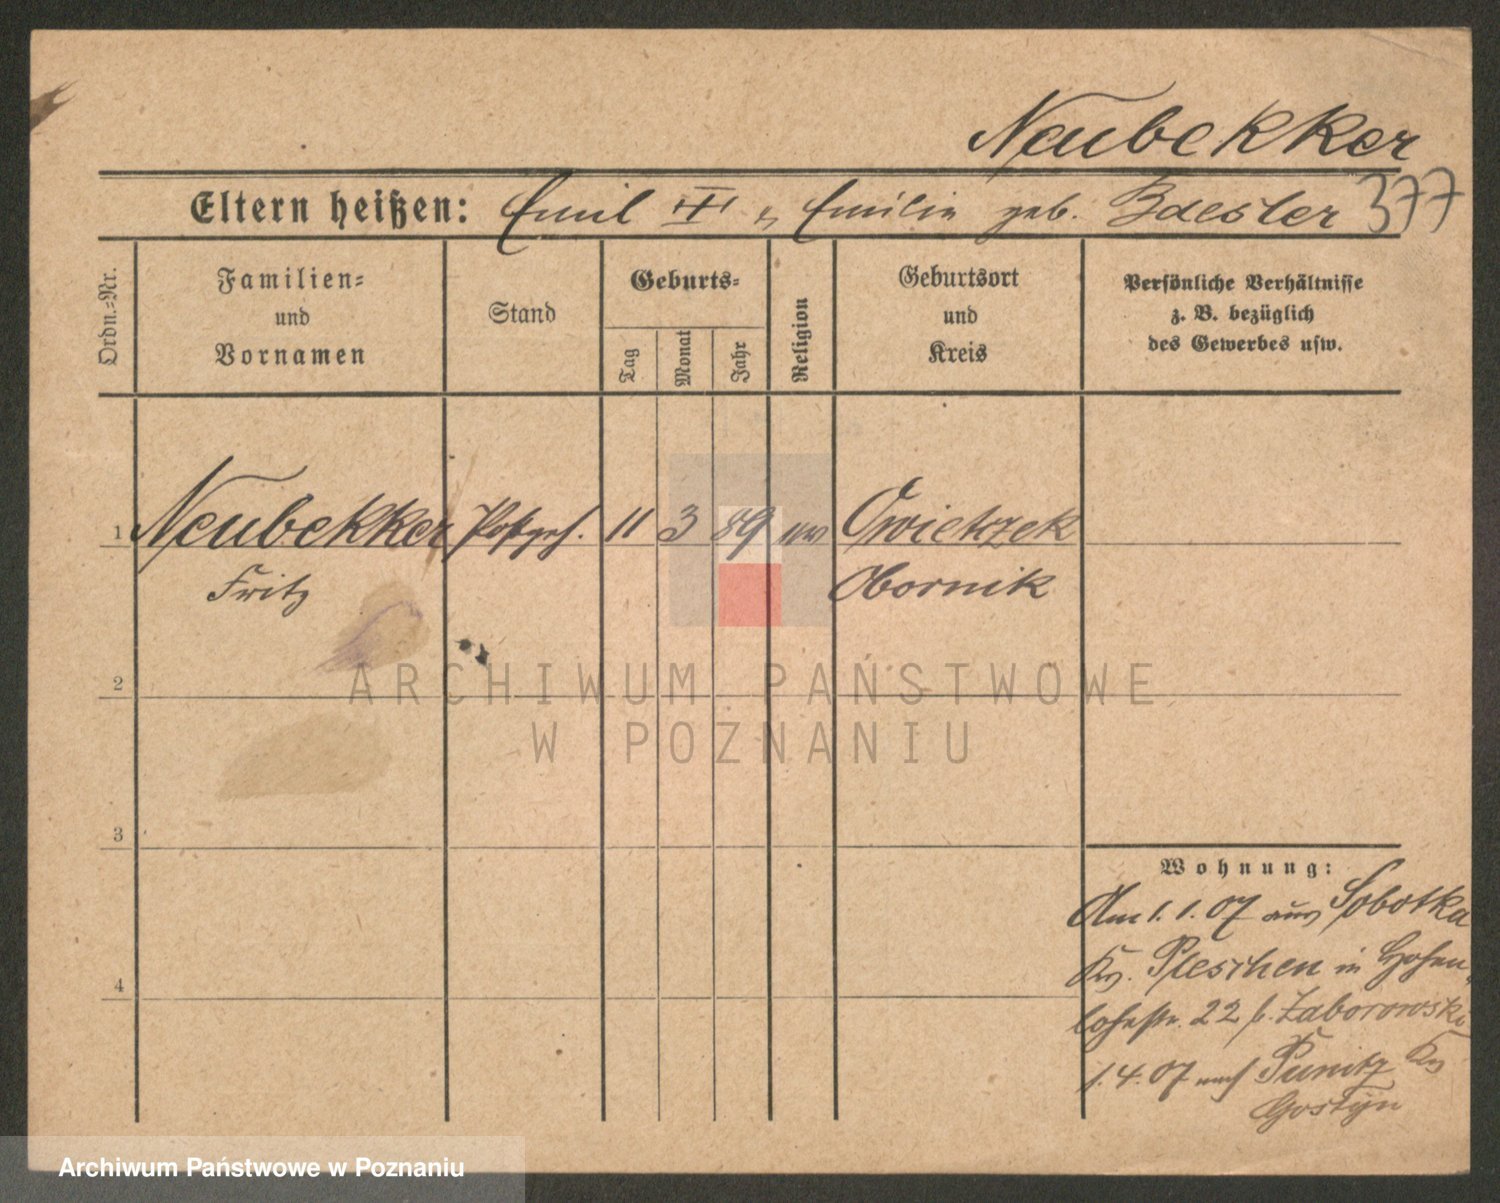 Neubekker
Eltern heißen: Emil III u. Emilie geb. Baesler 377
Ordn.-Nr.
Familien-
und
Vornamen
Stand
Geburts-
Tag
Monat
Jahr
Religion
Geburtsort
und
Kreis
Persönliche Verhältnisse
z. B. bezüglich
des Gewerbes usw.
1 Neubekker Postgeh. 11 3 89 ev Owietszek
Fritz Obornik
2
3
4
Wohnung:
Am 1.1.07 aus Sobotka
Kr. Pleschen in Hohen-
lohestr. 22 b. Zaborowski
1.4.07 nach Punitz Kr
Gostyn
ARCHIWUM PAŃSTWOWE
W POZNANIU
Archiwum Państwowe w Poznaniu